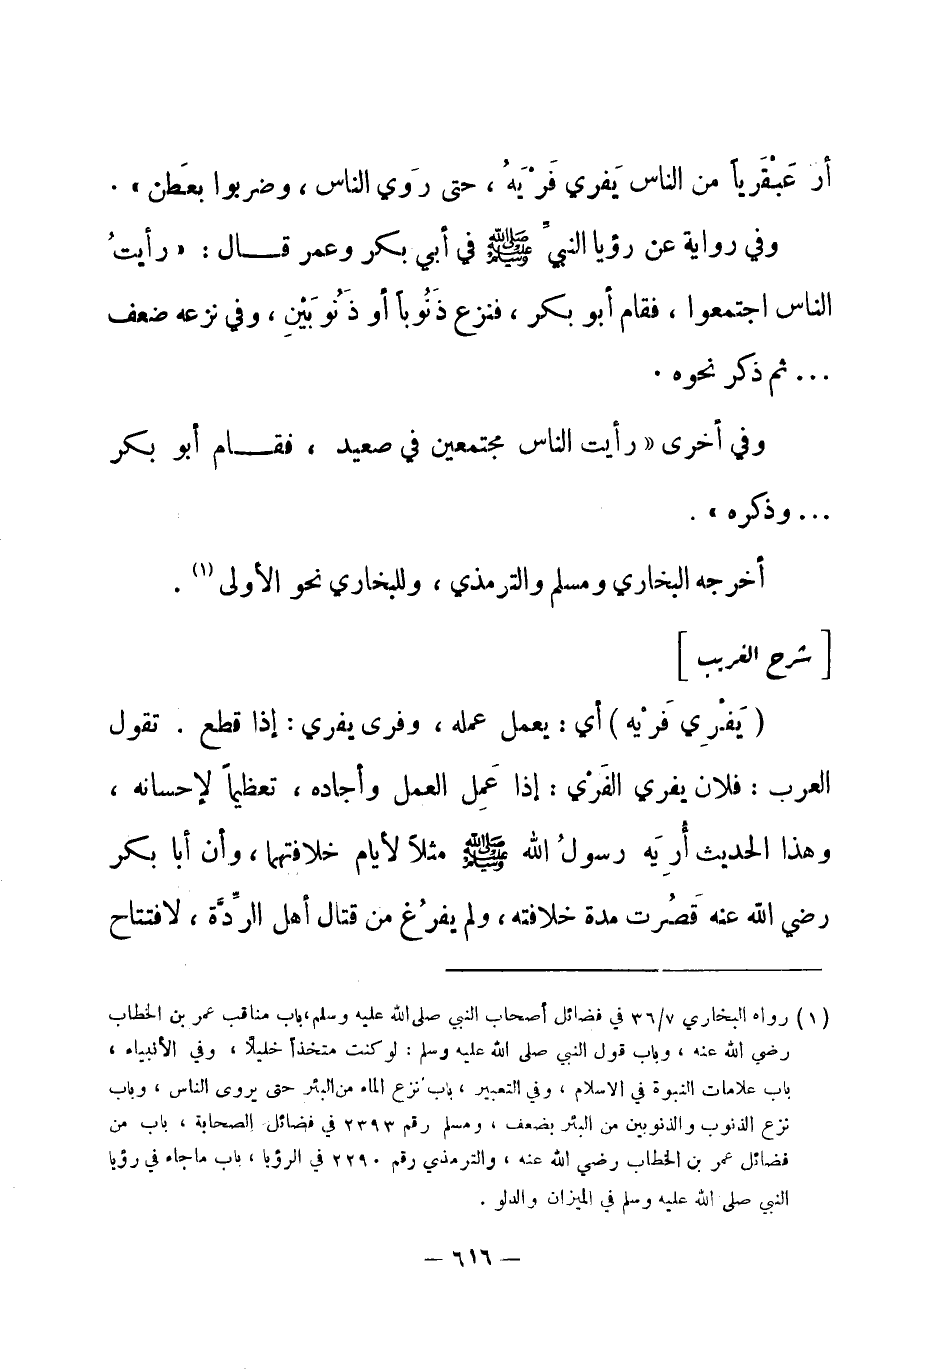 أرَ عَبْقَرياً من الناس يَفري فَرْيَهُ ، حتى رَوي الناس ، وضربوا بعطَن » .
وفي رواية عن رؤيا النبيِّ ﷺ في أبي بكر وعمر قــال : « رأيتُ
الناس اجتمعوا ، فقام أبو بكر ، فنزع ذَنُوباً أو ذَنُوبَيْنِ ، وفي نزعه ضعف
... ثم ذكر نحوه .
وفي أخرى « رأيت الناس مجتمعين في صعيد ، فقــام أبو بكر
... وذكره » .
أخرجه البخاري ومسلم والترمذي ، وللبخاري نحو الأولى (١) .
[ شرح الغريب ]
( يَفْرِي فَرْيه ) أي : يعمل عمله ، وفرى يفري : إذا قطع . تقول
العرب : فلان يفري الفَرْي : إذا عَمِل العمل وأجاده ، تعظيماً لإحسانه ،
وهذا الحديث أُرِيَه رسولُ الله ﷺ مثلاً لأيام خلافتهما ، وأن أبا بكر
رضي الله عنه قَصُرت مدة خلافته ، ولم يفرُغ من قتال أهل الرِّدَّة ، لافتتاح
(١) رواه البخاري ٣٦/٧ في فضائل أصحاب النبي صلى الله عليه وسلم ، باب مناقب عمر بن الخطاب
رضي الله عنه ، وباب قول النبي صلى الله عليه وسلم : لو كنت متخذاً خليلاً ، وفي الأنبياء ،
باب علامات النبوة في الاسلام ، وفي التعبير ، باب نزع الماء من البئر حتى يروى الناس ، وباب
نزع الذنوب والذنوبين من البئر بضعف ، ومسلم رقم ٢٣٩٣ في فضائل الصحابة ، باب من
فضائل عمر بن الخطاب رضي الله عنه ، والترمذي رقم ٢٢٩٠ في الرؤيا ، باب ماجاء في رؤيا
النبي صلى الله عليه وسلم في الميزان والدلو .
– ٦١٦ –